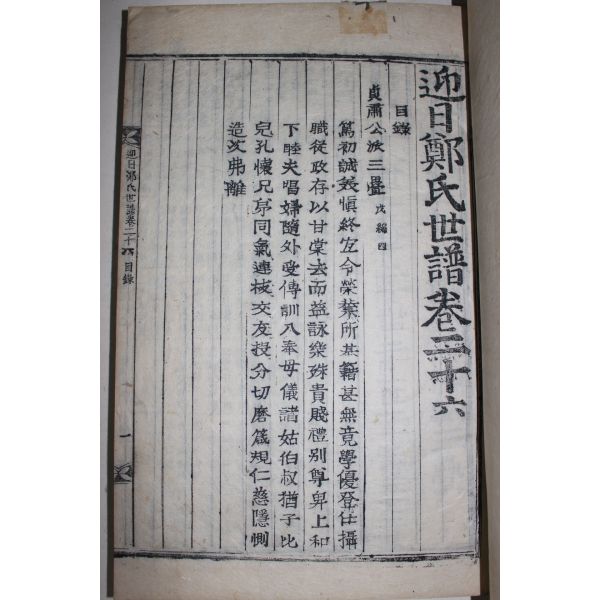 迎日鄭氏世譜卷二十六
目錄
貞肅公派三疊 戊編四
篤初誠美愼終宜令榮業所基籍甚無竟學優登仕攝
職從政存以甘棠去而益詠樂殊貴賤禮別尊卑上和
下睦夫唱婦隨外受傳訓入奉母儀諸姑伯叔猶子比
兒孔懷兄弟同氣連枝交友投分切磨箴規仁慈隱惻
造次弗離
迎日鄭氏世譜卷二十六 目錄
一